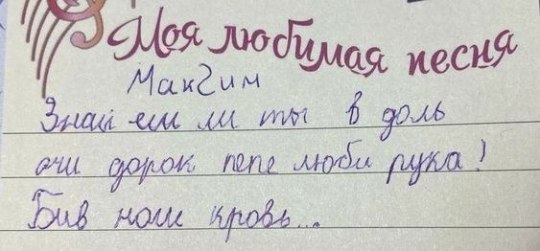 Моя любимая песня
МакSим
Знай еш ли ты в доль
ачи дорок пепе люби рука!
Бив наш кровь...